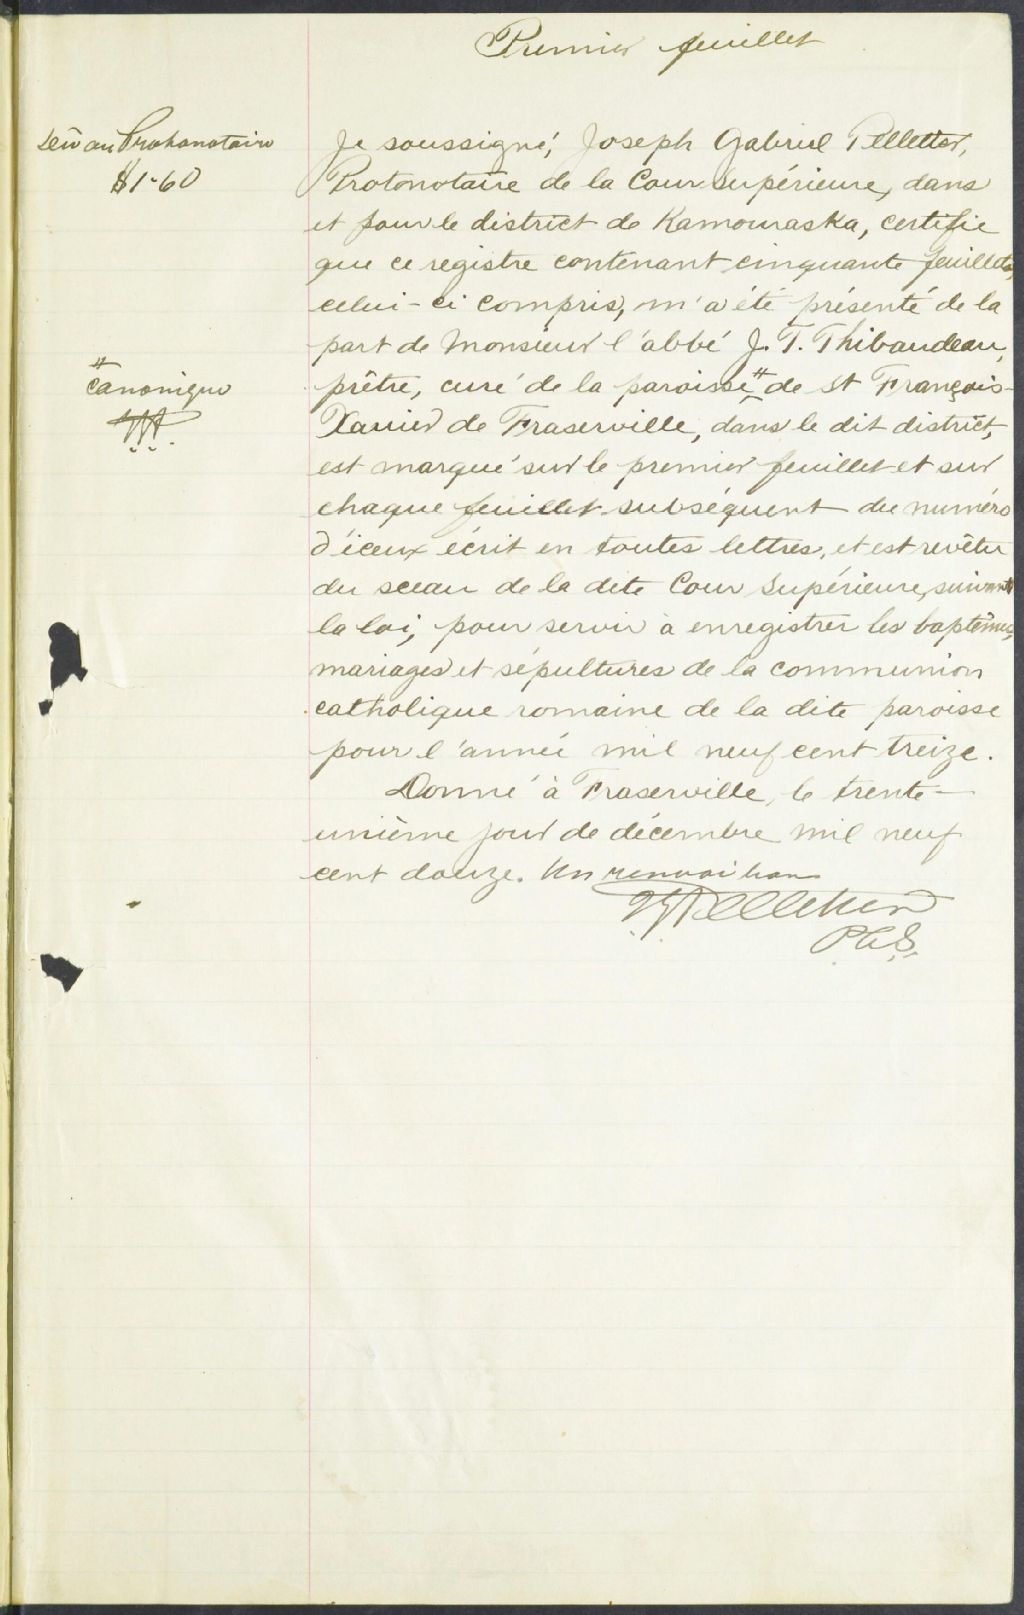 Premier feuillet
Dû au Prothonotaire
$1-60
Je soussigné, Joseph Gabriel Pelletier,
Protonotaire de la Cour Supérieure, dans
et pour le district de Kamouraska, certifie
que ce registre contenant cinquante feuillets,
celui-ci compris, m'a été présenté de la
part de Monsieur l'abbé J. T. Thibaudeau,
prêtre, curé de la paroisse # de St François-
# canonique
Xavier de Fraserville, dans le dit district,
est marqué sur le premier feuillet et sur
chaque feuillet subséquent du numéro
d'iceux écrit en toutes lettres, et est revêtu
du sceau de la dite Cour Supérieure, suivant
la loi, pour servir à enregistrer les baptêmes,
mariages et sépultures de la communion
catholique romaine de la dite paroisse
pour l'année mil neuf cent treize.
Donné à Fraserville, le trente-
unième jour de décembre mil neuf
cent douze. Un renvoi bon
JGPelletier
P.C.S.